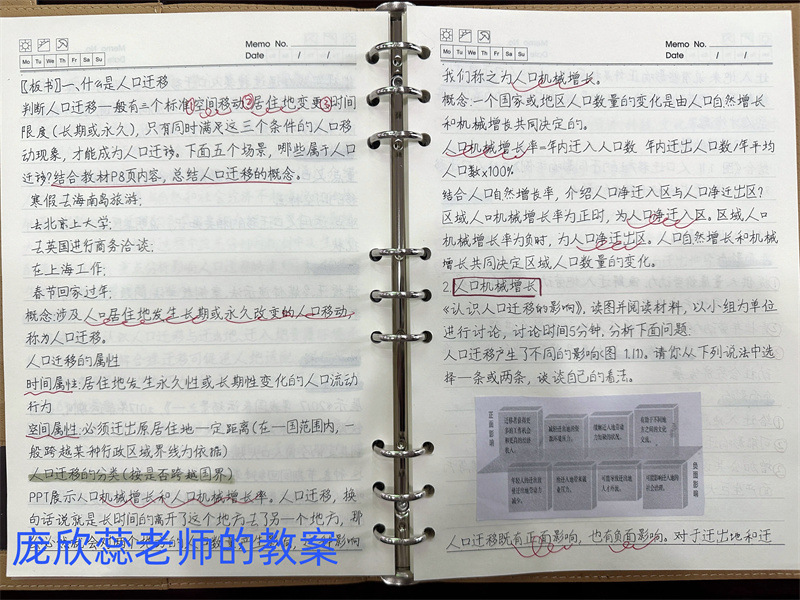 Memo No.
Mo Tu We Th Fr Sa Su
Date / /
【板书】一、什么是人口迁移
判断人口迁移一般有三个标准①空间移动②居住地变更③时间
限度(长期或永久),只有同时满足这三个条件的人口移
动现象,才能成为人口迁移。下面五个场景,哪些属于人口
迁移?结合教材P8页内容,总结人口迁移的概念。
寒假去海南岛旅游;
去北京上大学;
去英国进行商务洽谈;
在上海工作;
春节回家过年;
概念:涉及人口居住地发生长期或永久改变的人口移动,
称为人口迁移。
人口迁移的属性
时间属性:居住地发生永久性或长期性变化的人口流动
行为
空间属性:必须迁出原居住地一定距离(在一国范围内,一
般跨越某种行政区域界线为依据)
人口迁移的分类(按是否跨越国界)
PPT展示人口机械增长和人口机械增长率。人口迁移,换
句话说就是长时间的离开了这个地方去了另一个地方,那
影响
庞欣蕊老师的教案
Memo No.
Mo Tu We Th Fr Sa Su
Date / /
我们称之为人口机械增长。
概念:一个国家或地区人口数量的变化是由人口自然增长
和机械增长共同决定的。
人口机械增长率=年内迁入人口数 年内迁出人口数/年平均
人口数×100%
结合人口自然增长率,介绍人口净迁入区与人口净迁出区?
区域人口机械增长率为正时,为人口净迁入区。区域人口
机械增长率为负时,为人口净迁出区。人口自然增长和机械
增长共同决定区域人口数量的变化。
2.人口机械增长
《认识人口迁移的影响》,读图并阅读材料,以小组为单位
进行讨论,讨论时间5分钟,分析下面问题:
人口迁移产生了不同的影响(图 1.11)。请你从下列说法中选
择一条或两条,谈谈自己的看法。
正面影响
负面影响
人口迁移既有正面影响,也有负面影响。对于迁出地和迁